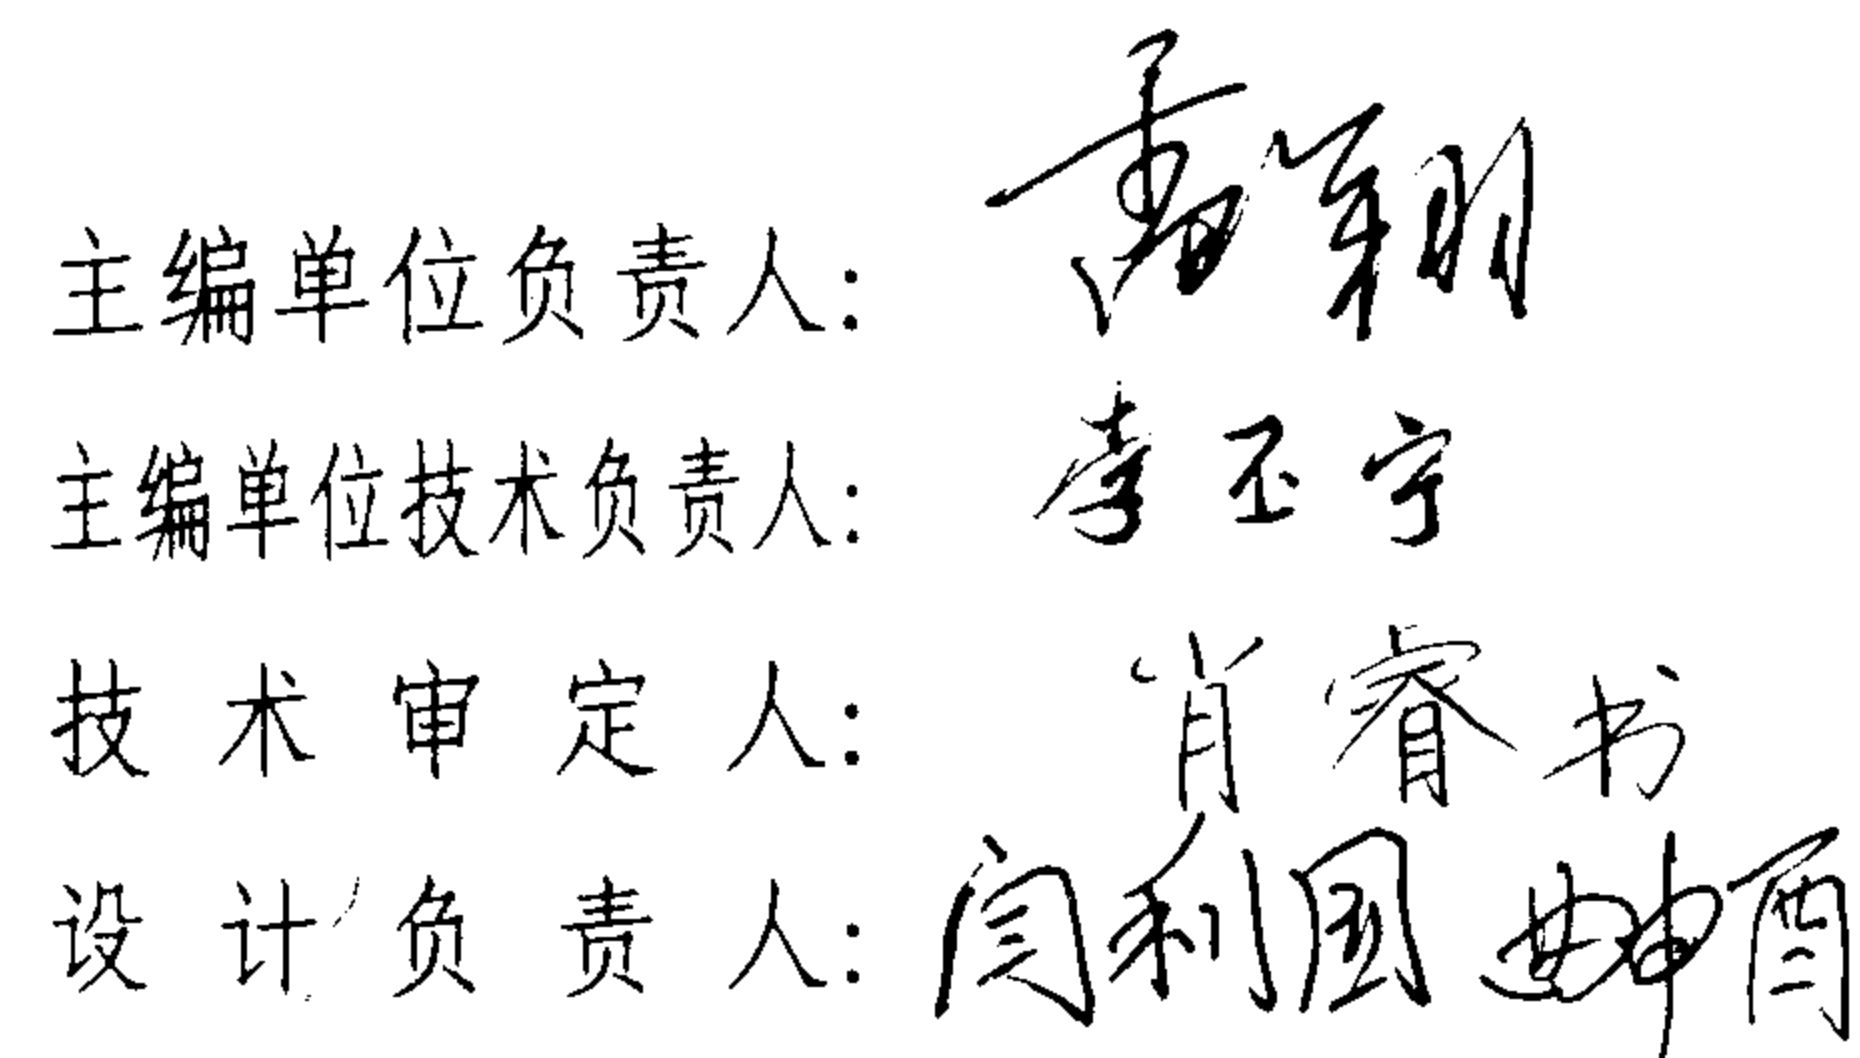 主编单位负责人:
主编单位技术负责人: 李丕宇
技术审定人: 肖睿书
设计负责人: 闫利国